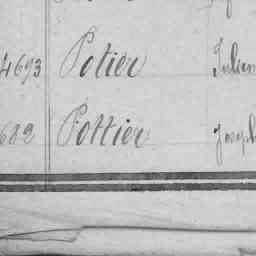 4693 Potier Julien
682 Pottier Joseph